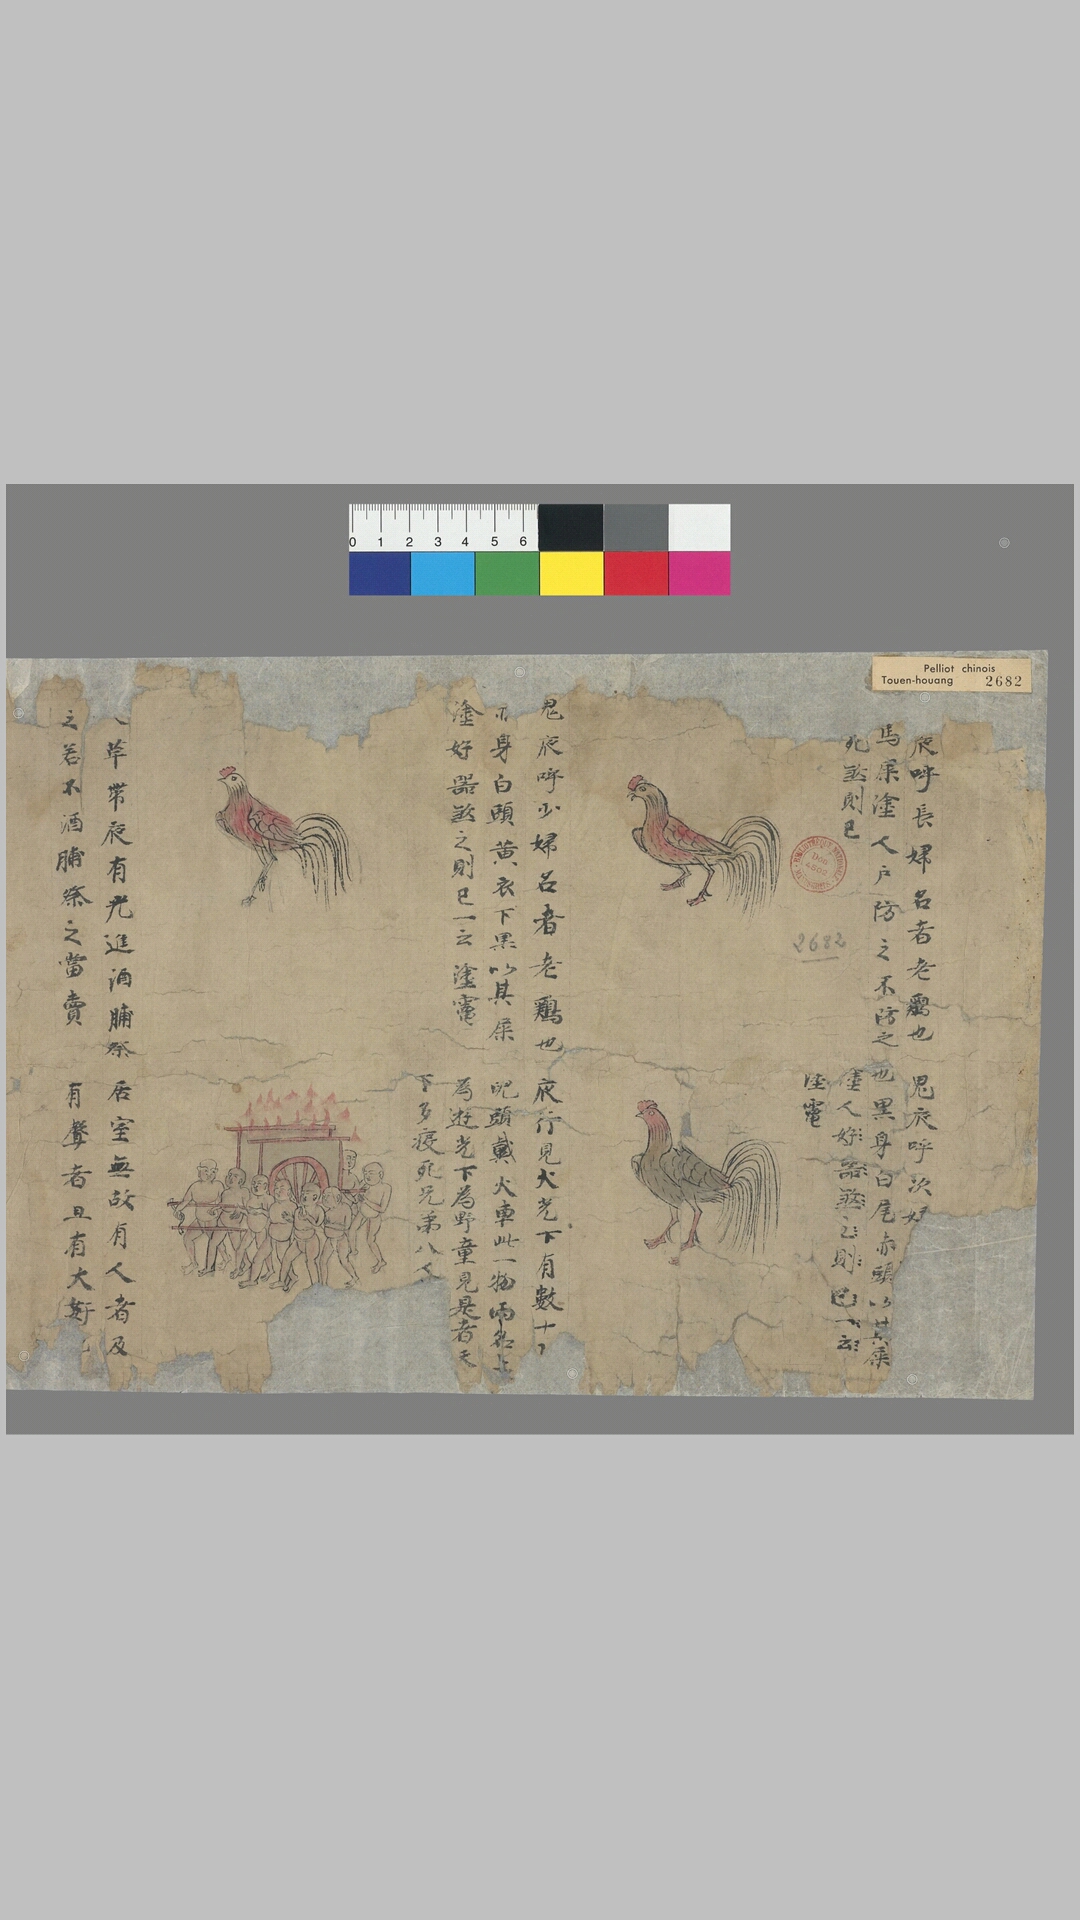 Pelliot chinois
Touen-houang 2682
0 1 2 3 4 5 6
夜呼長婦名者老鷄也
馬屎塗人戶防之不防之
死煞則已
鬼夜呼次婦
也黑身白尾赤頭以其屎
塗人好器煞之則已一云
塗竈
2682
鬼夜呼少婦名者老鷄也
身白頭黃衣下黑以其屎
塗好器煞之則已一云塗竈
夜行見火光下有數十
頭戴火車此一物兩名上
為遊光下為野童見是者天
下多疫死兄弟八人
草帶夜有光進酒脯祭
之若不酒脯祭之當賣
居室無故有人者及
有聲者且有大